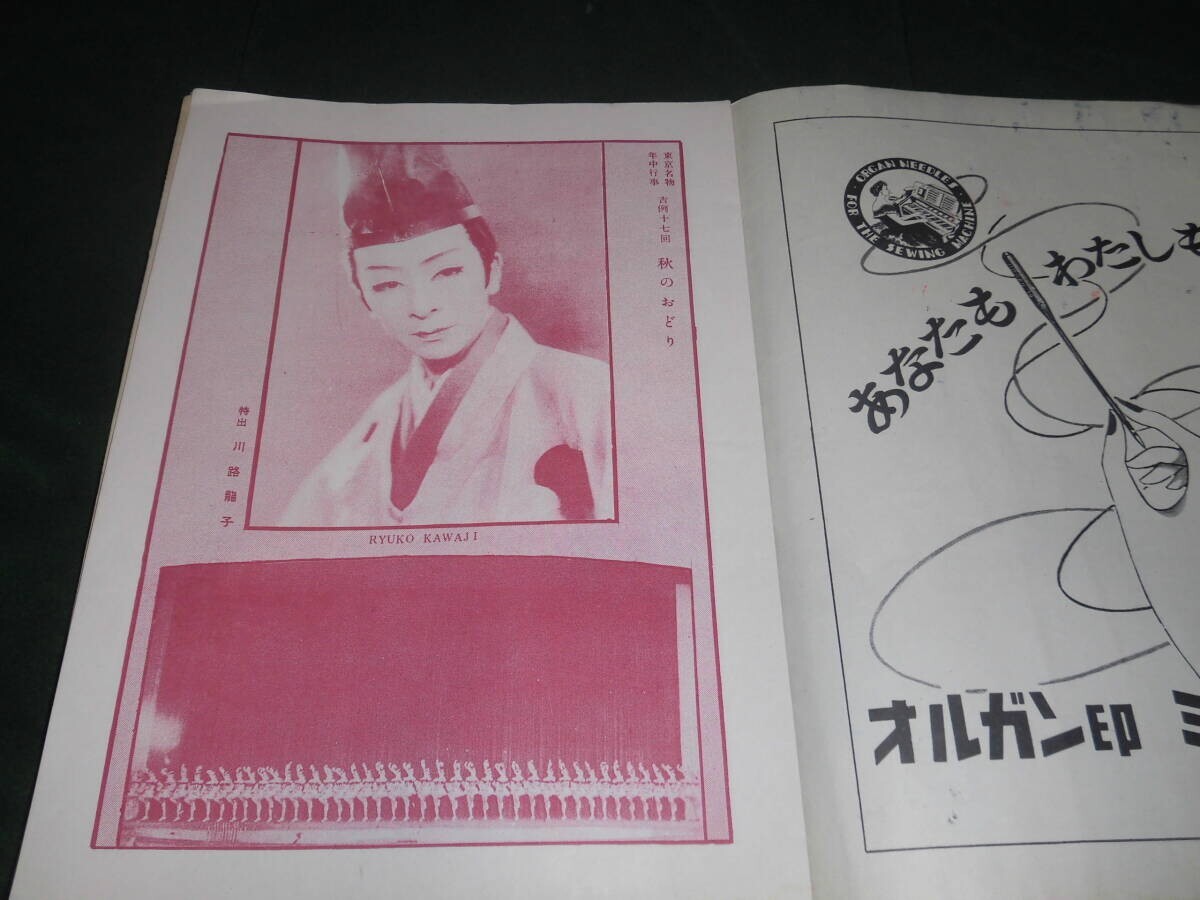 東京名物
年中行事
吉例十七回 秋のおどり
特出 川路龍子
RYUKO KAWAJI
ORGAN NEEDLES
FOR THE SEWING MACHINE
あなたも わたしも
オルガン印 ミ